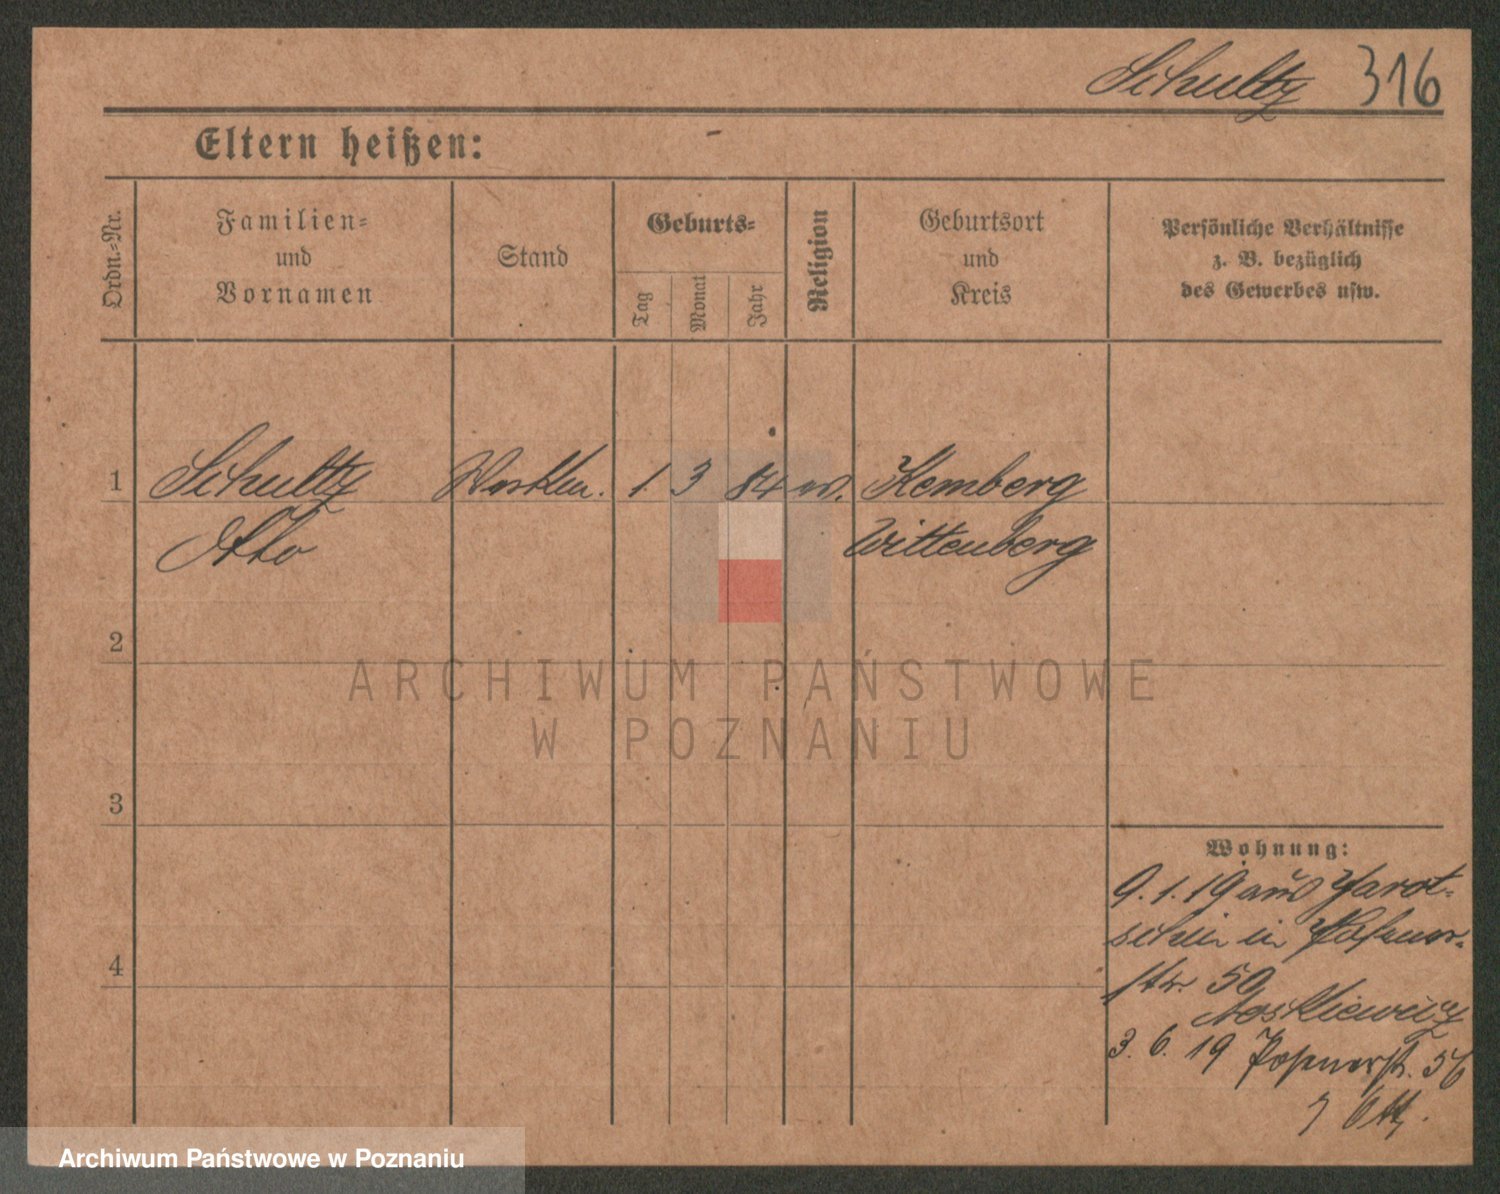 Schultz 316
Eltern heißen: -
Ordn.-Nr.
Familien-
und
Vornamen
Stand
Geburts-
Tag
Monat
Jahr
Religion
Geburtsort
und
Kreis
Persönliche Verhältnisse
z. B. bezüglich
des Gewerbes usw.
1 Schultz 1. 3 84 ev. Kemberg
Otto Wittenberg
2
3
4
Wohnung:
9.1.19 aus Jarot-
schin in Posener-
str. 50
3. 6. 19 Posenerstr. 56
ARCHIWUM PAŃSTWOWE
W POZNANIU
Archiwum Państwowe w Poznaniu